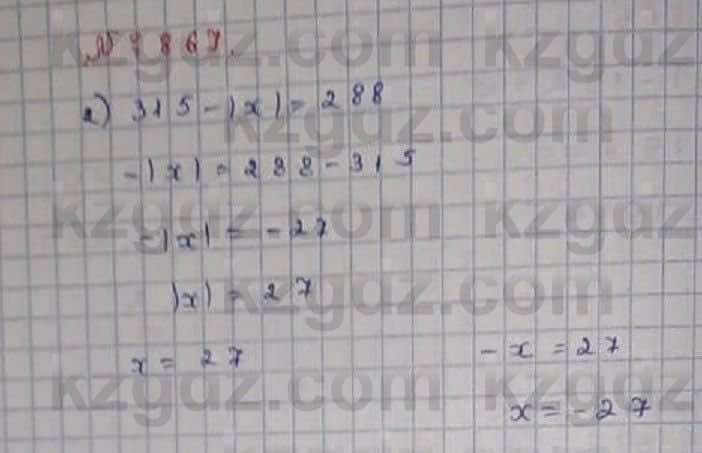 № 867.
а) 315 - |x| = 288
-|x| = 288 - 315
-|x| = -27
|x| = 27
x = 27
- x = 27
x = -27
kzgdz.com
kzgdz.com
kzgdz.com
kzgdz.com
kzgdz.com
kzgdz.com